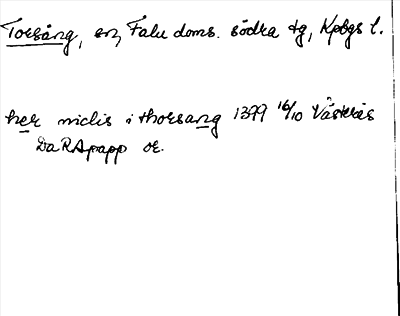 Torsång, sn, Falu doms. södra tg, Kpbgs l.
her niclis i thorsang 1399 16/10 Västerås
DaRApapp or.